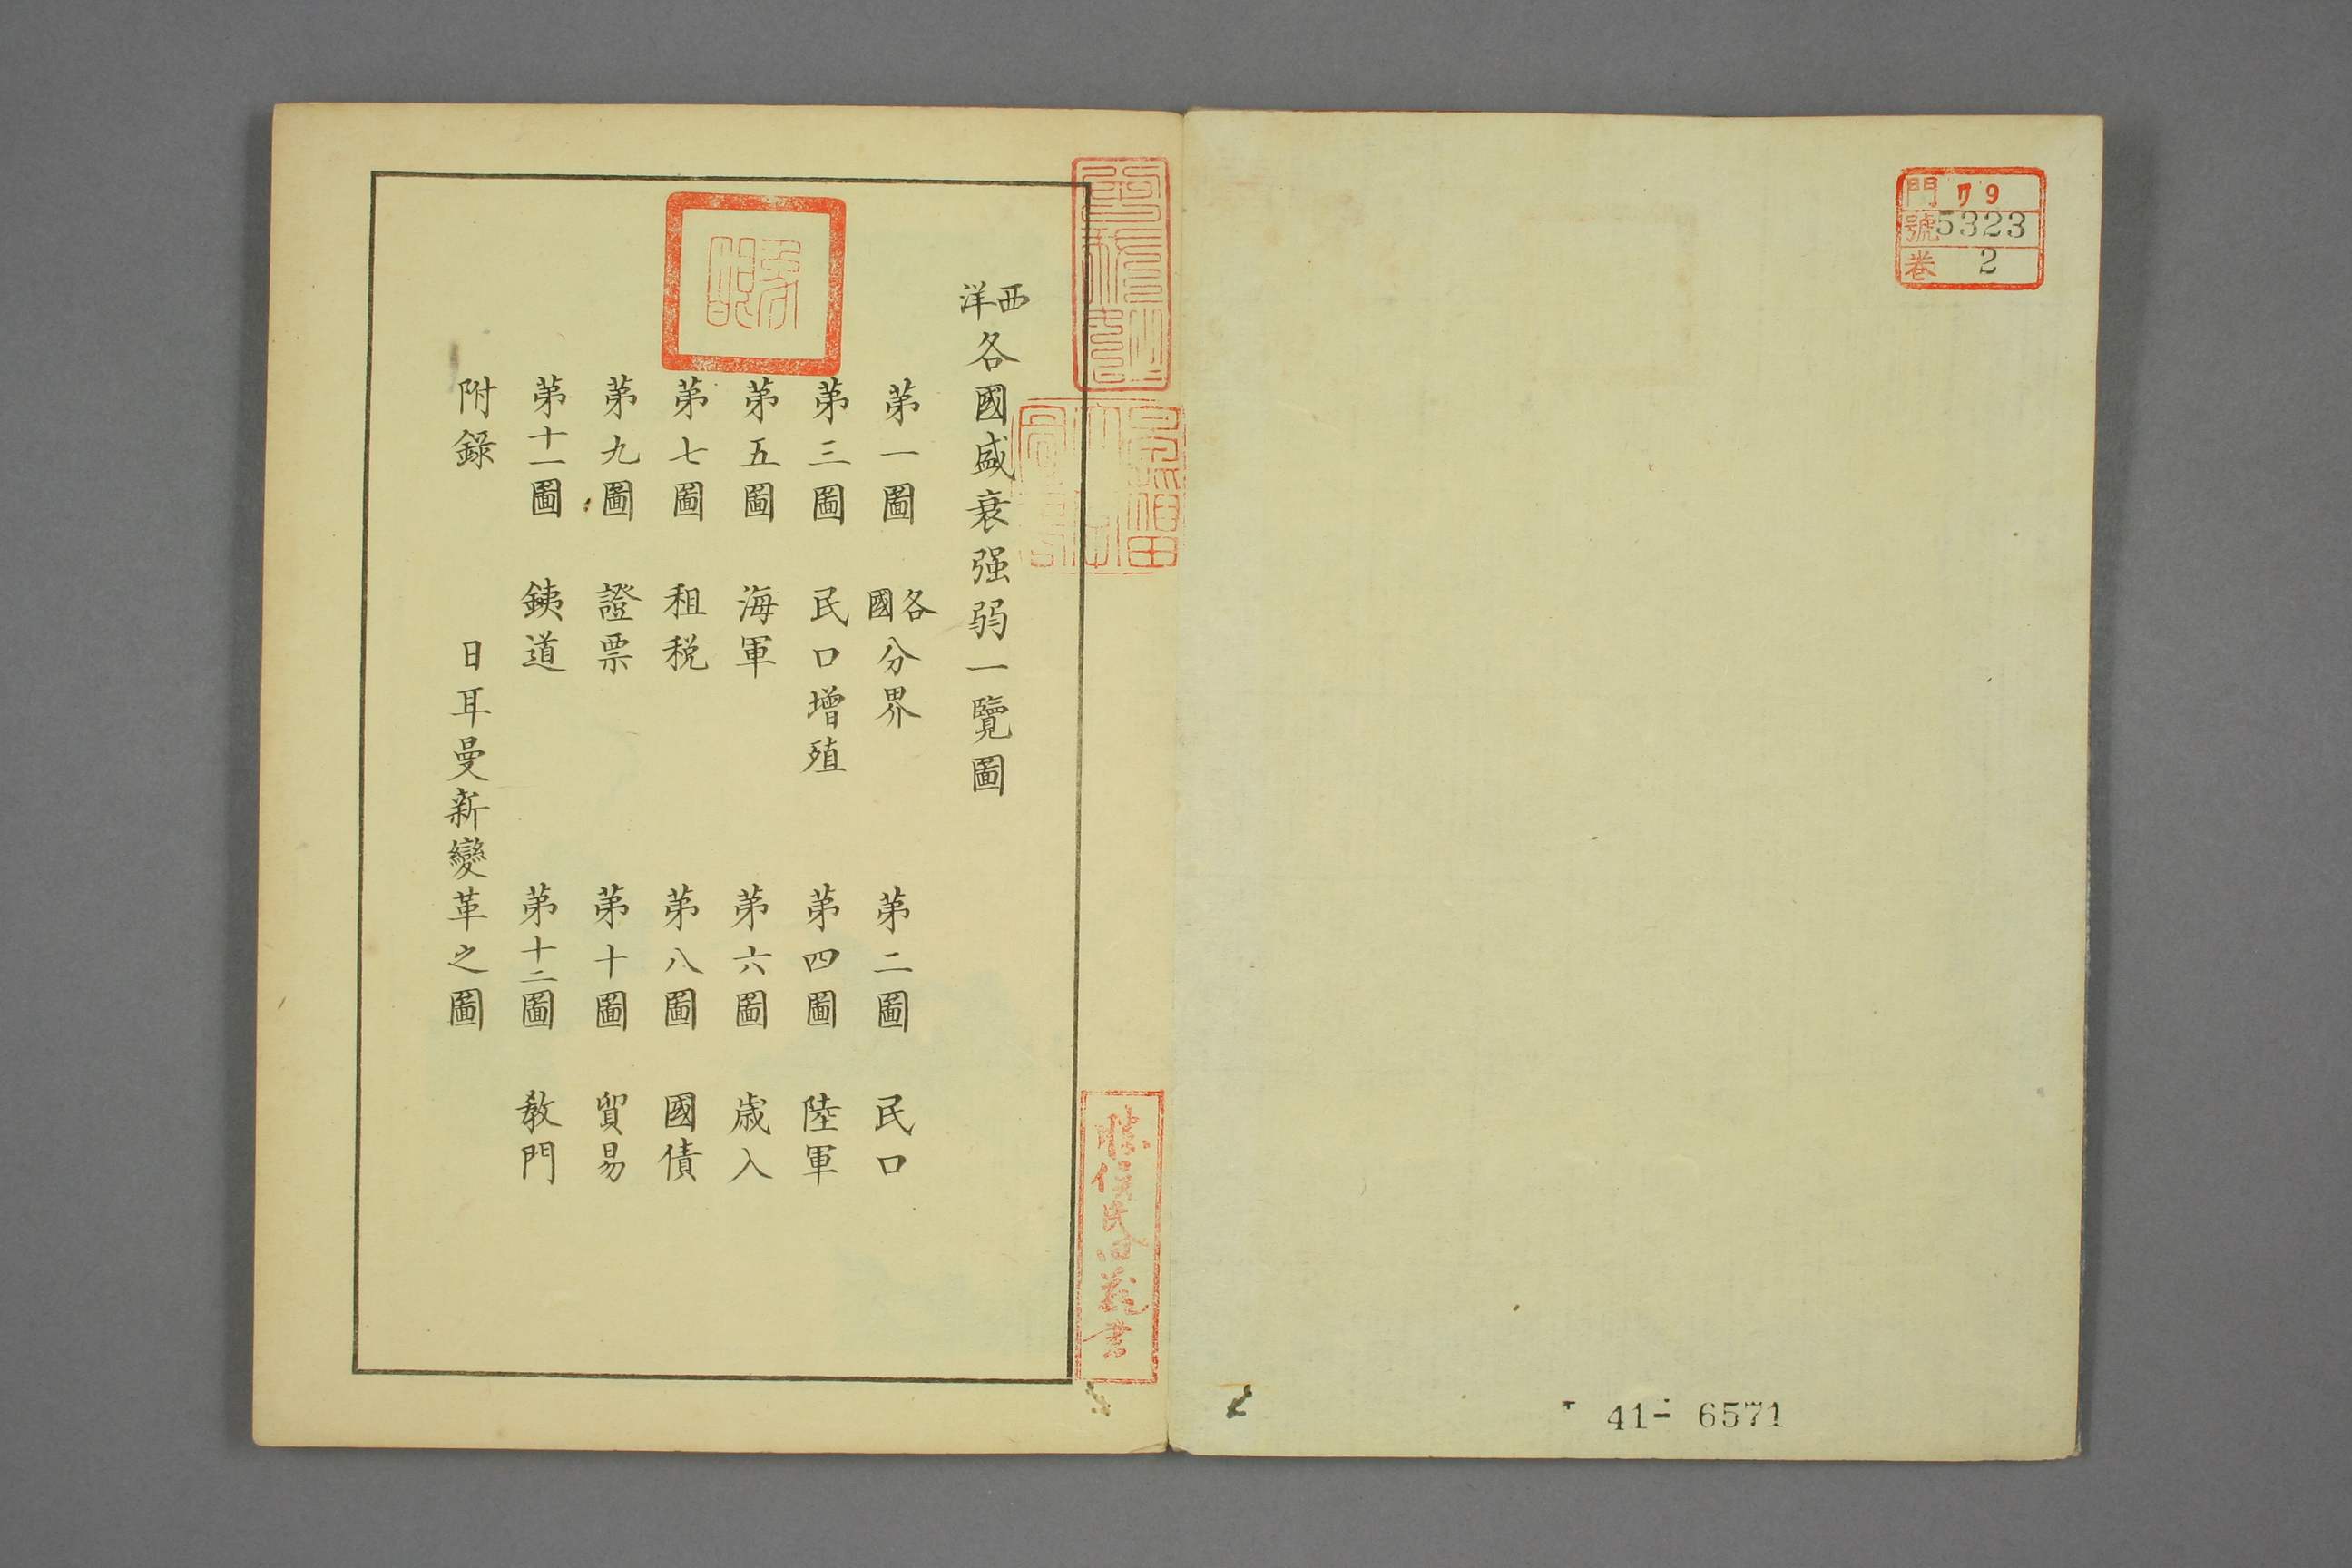 門 79
號 5323
卷 2
41- 6571
西洋各國盛衰强弱一覽圖
第一圖 各國分界 第二圖 民口
第三圖 民口增殖 第四圖 陸軍
第五圖 海軍 第六圖 歲入
第七圖 租税 第八圖 國債
第九圖 證票 第十圖 貿易
第十一圖 銕道 第十二圖 敎門
附錄 日耳曼新變革之圖